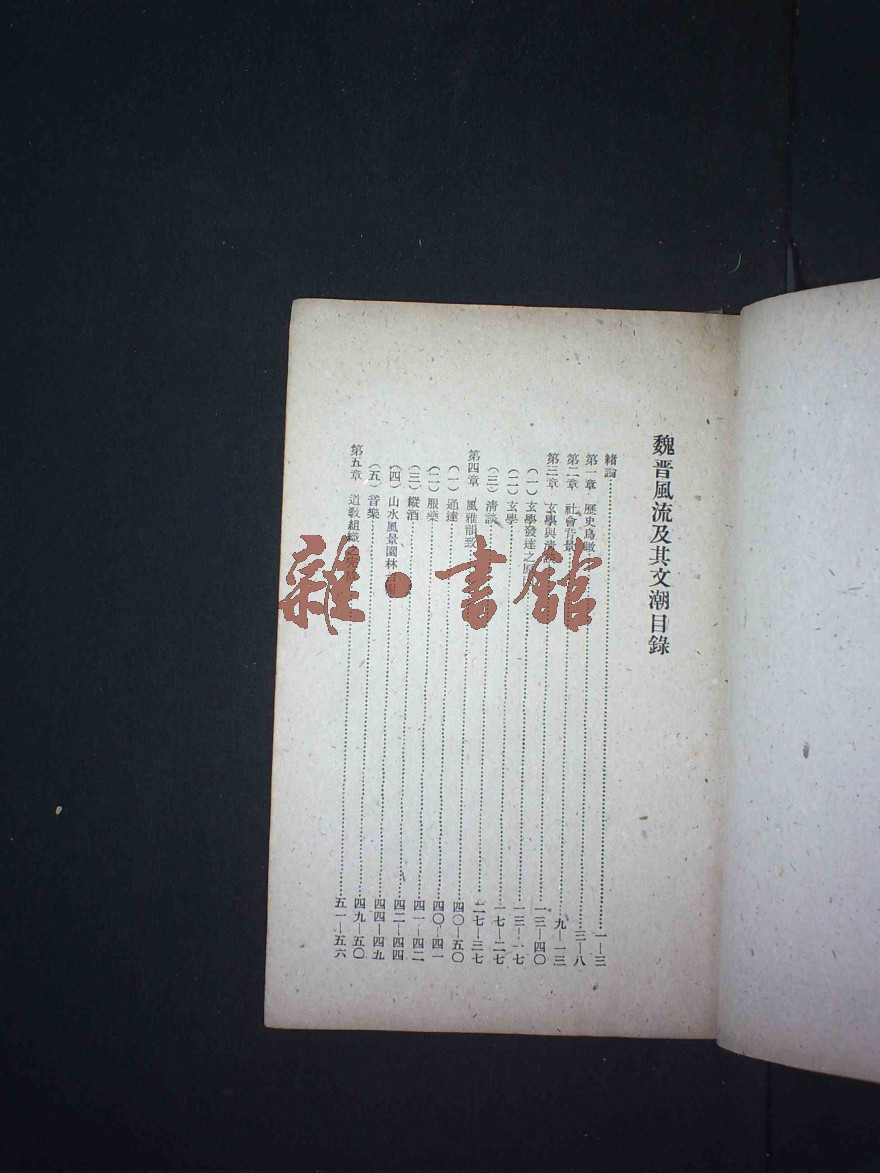 魏晋風流及其文潮目錄
緒論 一—三
第一章 歷史鳥瞰 三—八
第二章 社會背景 九—一三
第三章 玄學與清談 一三—四〇
(一) 玄學發達之原 一三—一七
(二) 玄學 一七—二七
(三) 清談 二七—三七
第四章 風雅韻致 四〇—五〇
(一) 通達 四〇—四一
(二) 服藥 四一—四二
(三) 縱酒 四二—四四
(四) 山水風景園林 四四—四九
(五) 音樂 四九—五〇
第五章 道敎組織之 五一—五六
雜·書館